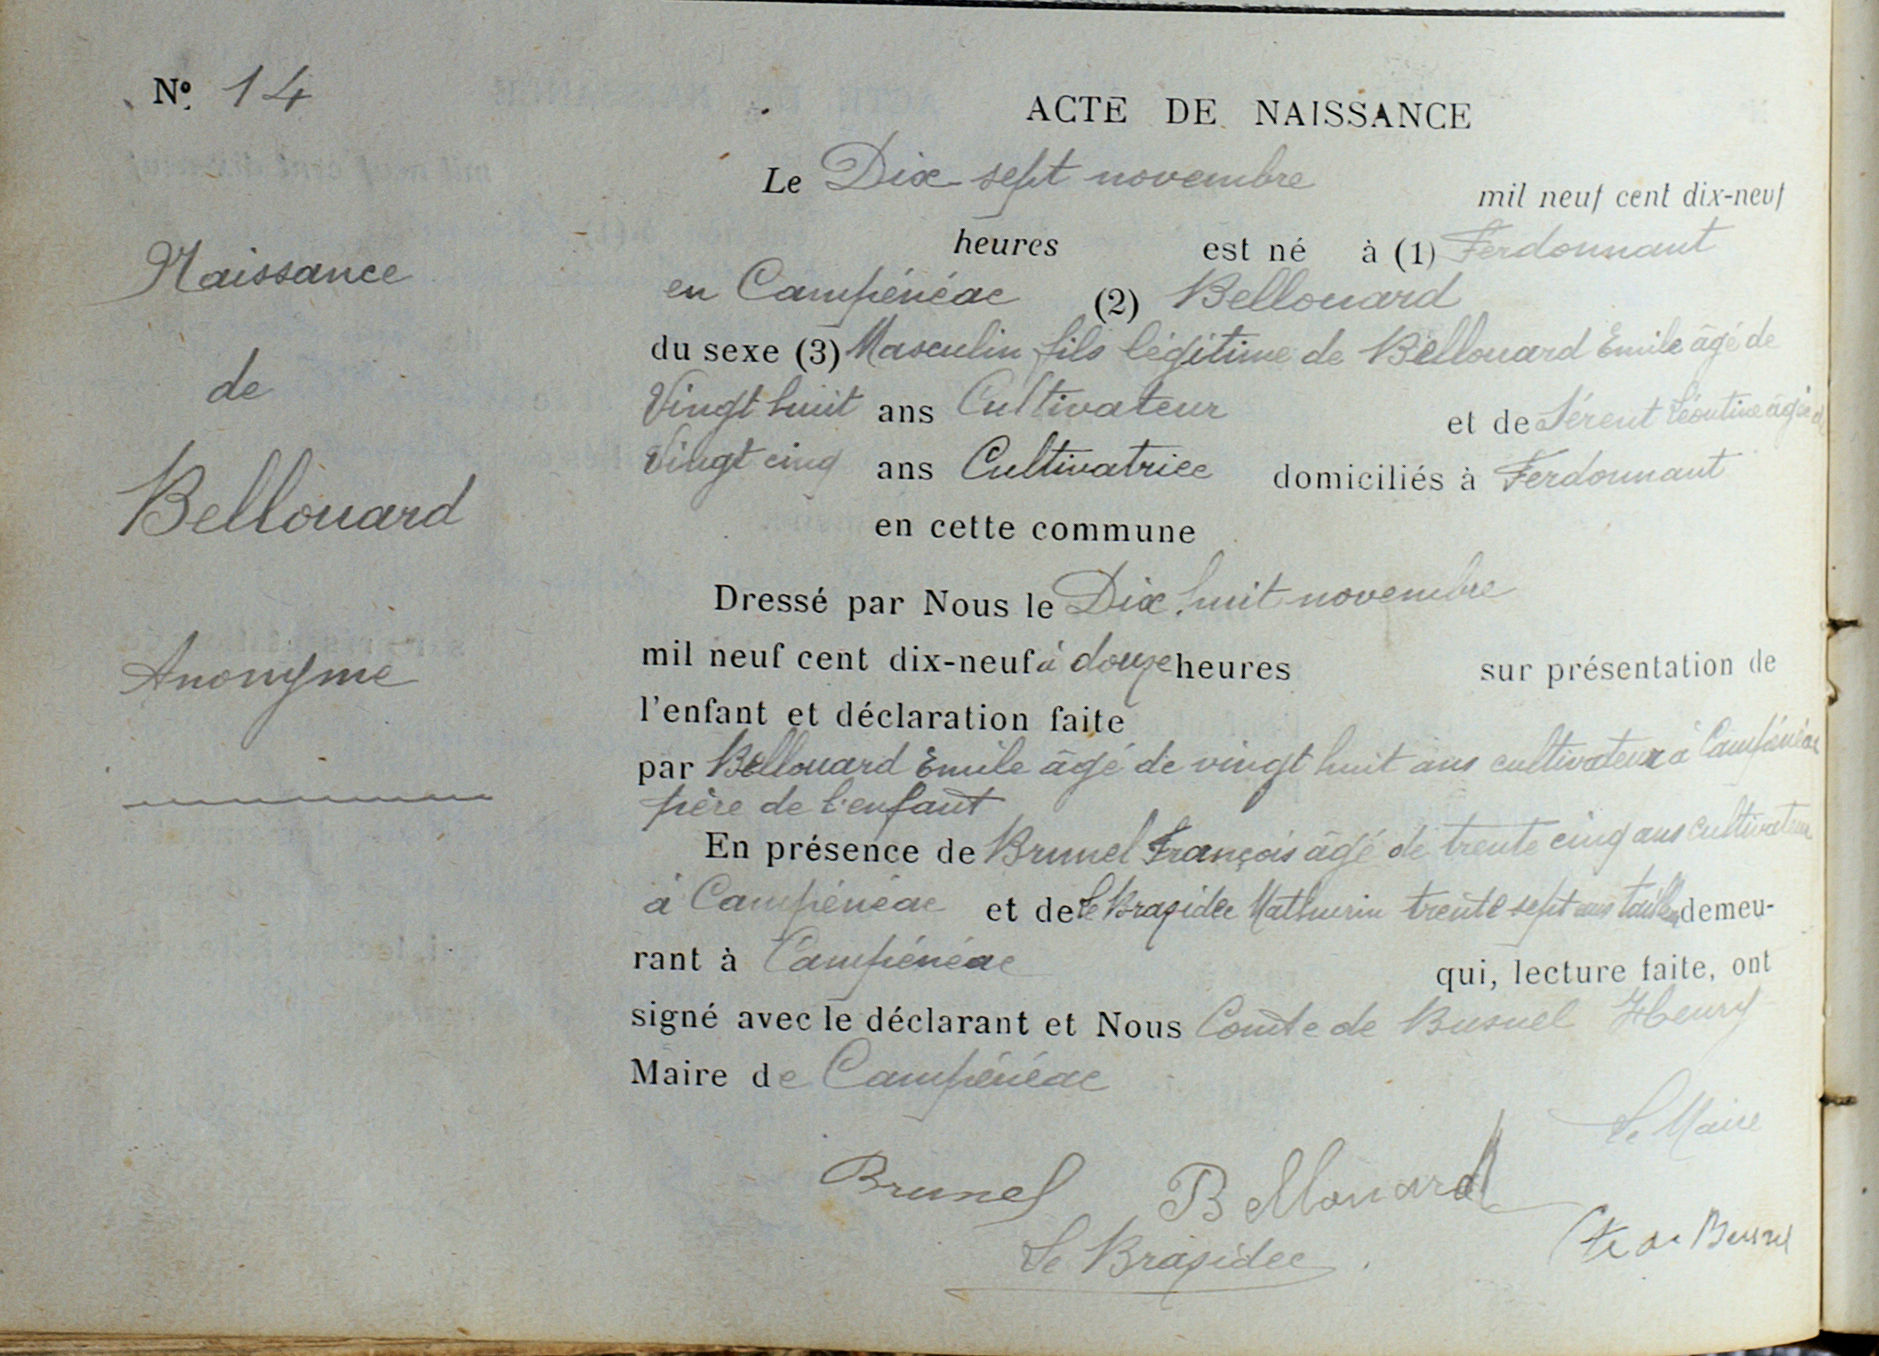 Nº 14
Naissance
de
Bellouard
Anonyme
ACTE DE NAISSANCE
Le Dix sept novembre mil neuf cent dix-neuf
heures est né à (1) Ferdonnant
en Campénéac (2) Bellouard
du sexe (3) Masculin fils légitime de Bellouard Emile âgé de
Vingt huit ans Cultivateur et de Sérent Léontine âgée de
Vingt cinq ans Cultivatrice domiciliés à Ferdonnant
en cette commune
Dressé par Nous le Dix huit novembre
mil neuf cent dix-neuf à douze heures sur présentation de
l'enfant et déclaration faite
par Bellouard Emile âgé de vingt huit ans cultivateur à Campénéac
père de l'enfant
En présence de Brunel François âgé de trente cinq ans cultivateur
à Campénéac et de Le Brazidec Mathurin trente sept ans tailleur demeu-
rant à Campénéac qui, lecture faite, ont
signé avec le déclarant et Nous Comte de Busnel Henry
Maire de Campénéac
Le Maire
Brunel Bellouard
Le Brazidec Cte de Busnel